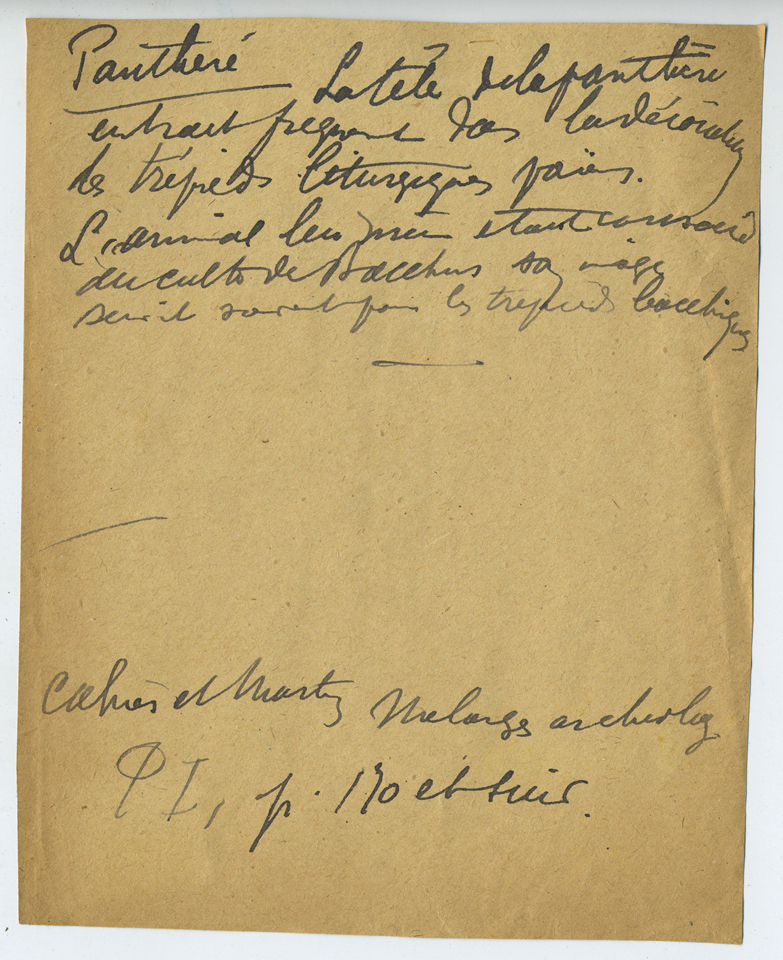 Panthère La tête de la panthère
entrait frequent dans la décoration
des trépieds liturgiques païens.
L'animal lui même etant consacré
au culte de Bacchus son image
servit souvent pour les trépieds bacchiques
Cahier et Martin Melanges archeolog
P I, p. 170 et suiv.